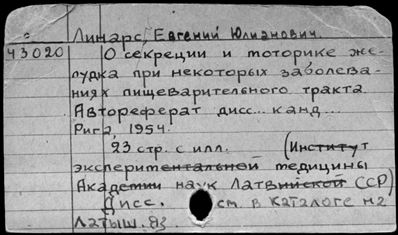 Линарс, Евгений Юлианович.
43020 О секреции и моторике же-
лудка при некоторых заболева-
ниях пищеварительного тракта.
Автореферат дисс... канд...
Рига, 1954.
23 стр. с илл. (Институт
экспериментальной медицины
Академии наук Латвийской ССР)
Дисс. см. в каталоге на
Латыш. яз.